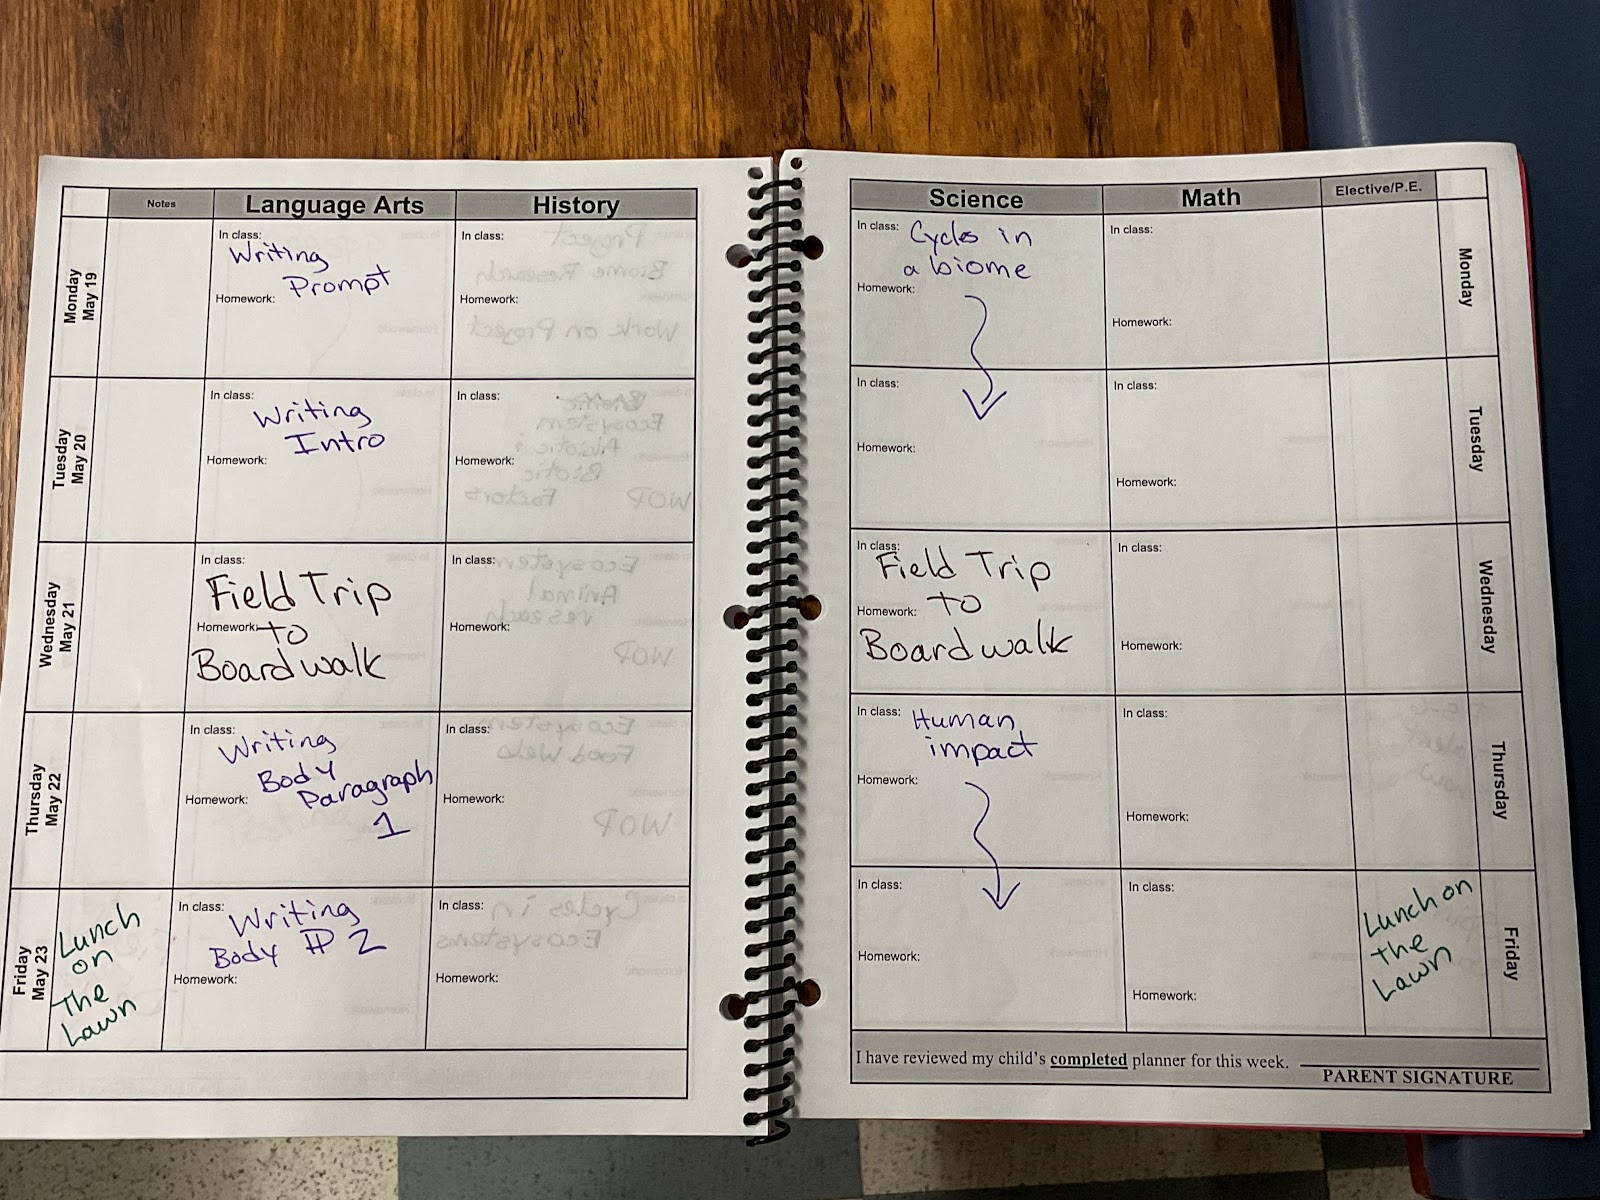 Notes Language Arts History
Monday
May 19
In class:
Writing
Prompt
Homework:
In class:
Homework:
Tuesday
May 20
In class:
Writing
Intro
Homework:
In class:
Homework:
Wednesday
May 21
In class:
Field Trip
Homework: to
Boardwalk
In class:
Homework:
Thursday
May 22
In class:
Writing
Body
Homework: Paragraph
1
In class:
Homework:
Friday
May 23
Lunch
on
The
Lawn
In class: Writing
Body # 2
Homework:
In class:
Homework:
Science Math Elective/P.E.
In class: Cycles in
a biome
Homework:
In class:
Homework:
Monday
In class:
Homework:
In class:
Homework:
Tuesday
In class:
Field Trip
Homework: to
Boardwalk
In class:
Homework:
Wednesday
In class: Human
impact
Homework:
In class:
Homework:
Thursday
In class:
Homework:
In class:
Homework:
Lunch on
the
Lawn
Friday
I have reviewed my child's completed planner for this week.
PARENT SIGNATURE